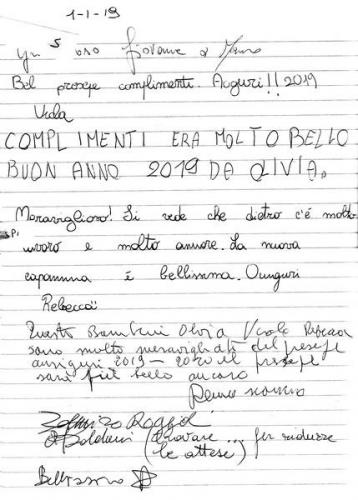 1-1-19
Bel presepe complimenti. Auguri!! 2019
Viola
COMPLIMENTI ERA MOLTO BELLO
BUON ANNO 2019 DA OLIVIA.
Meraviglioso! Si vede che dietro c'è molto
lavoro e molto amore. La nuova
capannina è bellissima.
Rebecca
Questo Bambini Olivia Viola Rebecca
sono molto meravigliati del presepe
auguri 2019-2020 il presepe
sarà più bello ancora
nonno
(provare ... per ridurre
le attese)
Bellissimo